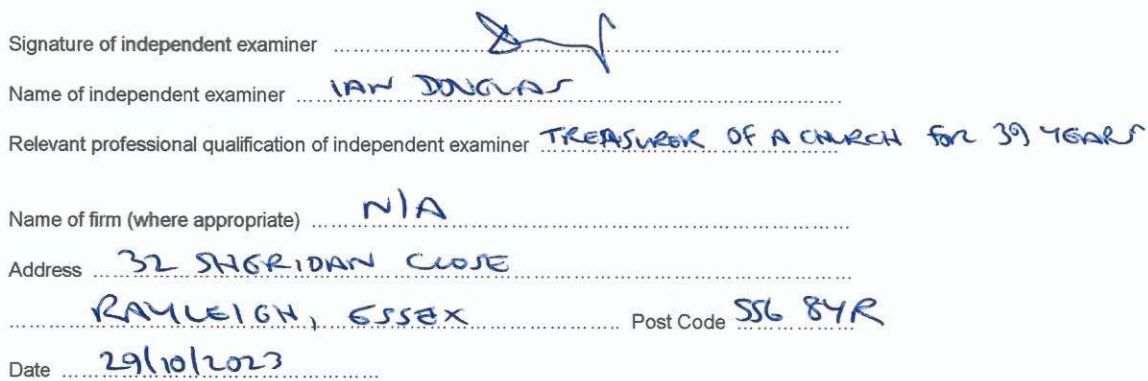 Signature of independent examiner
Name of independent examiner IAN DOUGLAS
Relevant professional qualification of independent examiner TREASURER OF A CHURCH FOR 39 YEARS
Name of firm (where appropriate) N/A
Address 32 SHERIDAN CLOSE
RAYLEIGH, ESSEX Post Code SS6 8YR
Date 29/10/2023